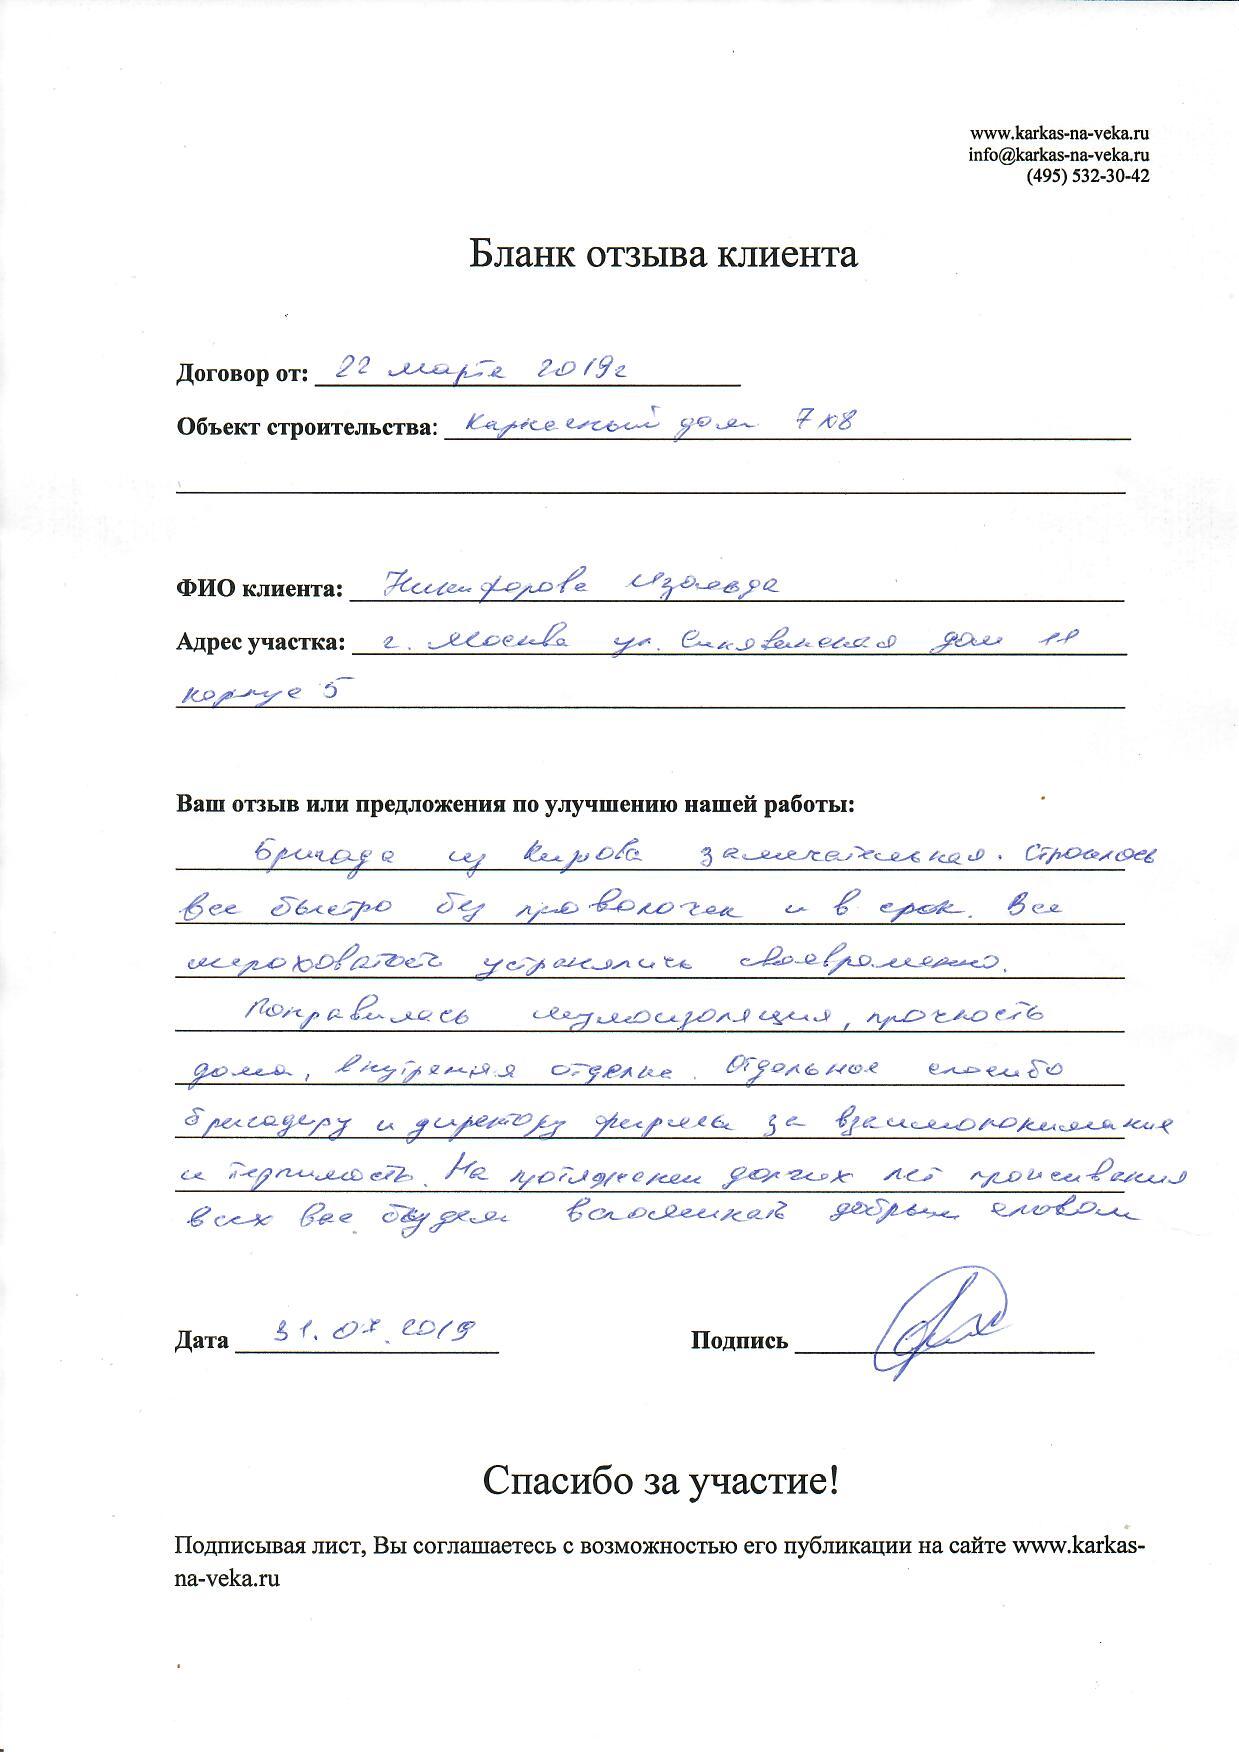 www.karkas-na-veka.ru
info@karkas-na-veka.ru
(495) 532-30-42
Бланк отзыва клиента
Договор от: 22 марта 2019г
Объект строительства: Каркасный дом 7х8
ФИО клиента: Никифорова Изольда
Адрес участка: г. Москва ул. дом 11
корпус 5
Ваш отзыв или предложения по улучшению нашей работы:
Бригада из Кирова замечательная. Строилось
все быстро без проволочек и в срок. Все
шероховатость устранялись своевременно.
Понравилась шумоизоляция, прочность
дома, внутреняя отделка. Отдельное спасибо
бригадеру и директору фирмы за взаимопонимание
и терпимость. На протяжении долгих лет проживания
всех Вас будем вспоминать добрым словом
Дата 31.07.2019 Подпись
Спасибо за участие!
Подписывая лист, Вы соглашаетесь с возможностью его публикации на сайте www.karkas-
na-veka.ru